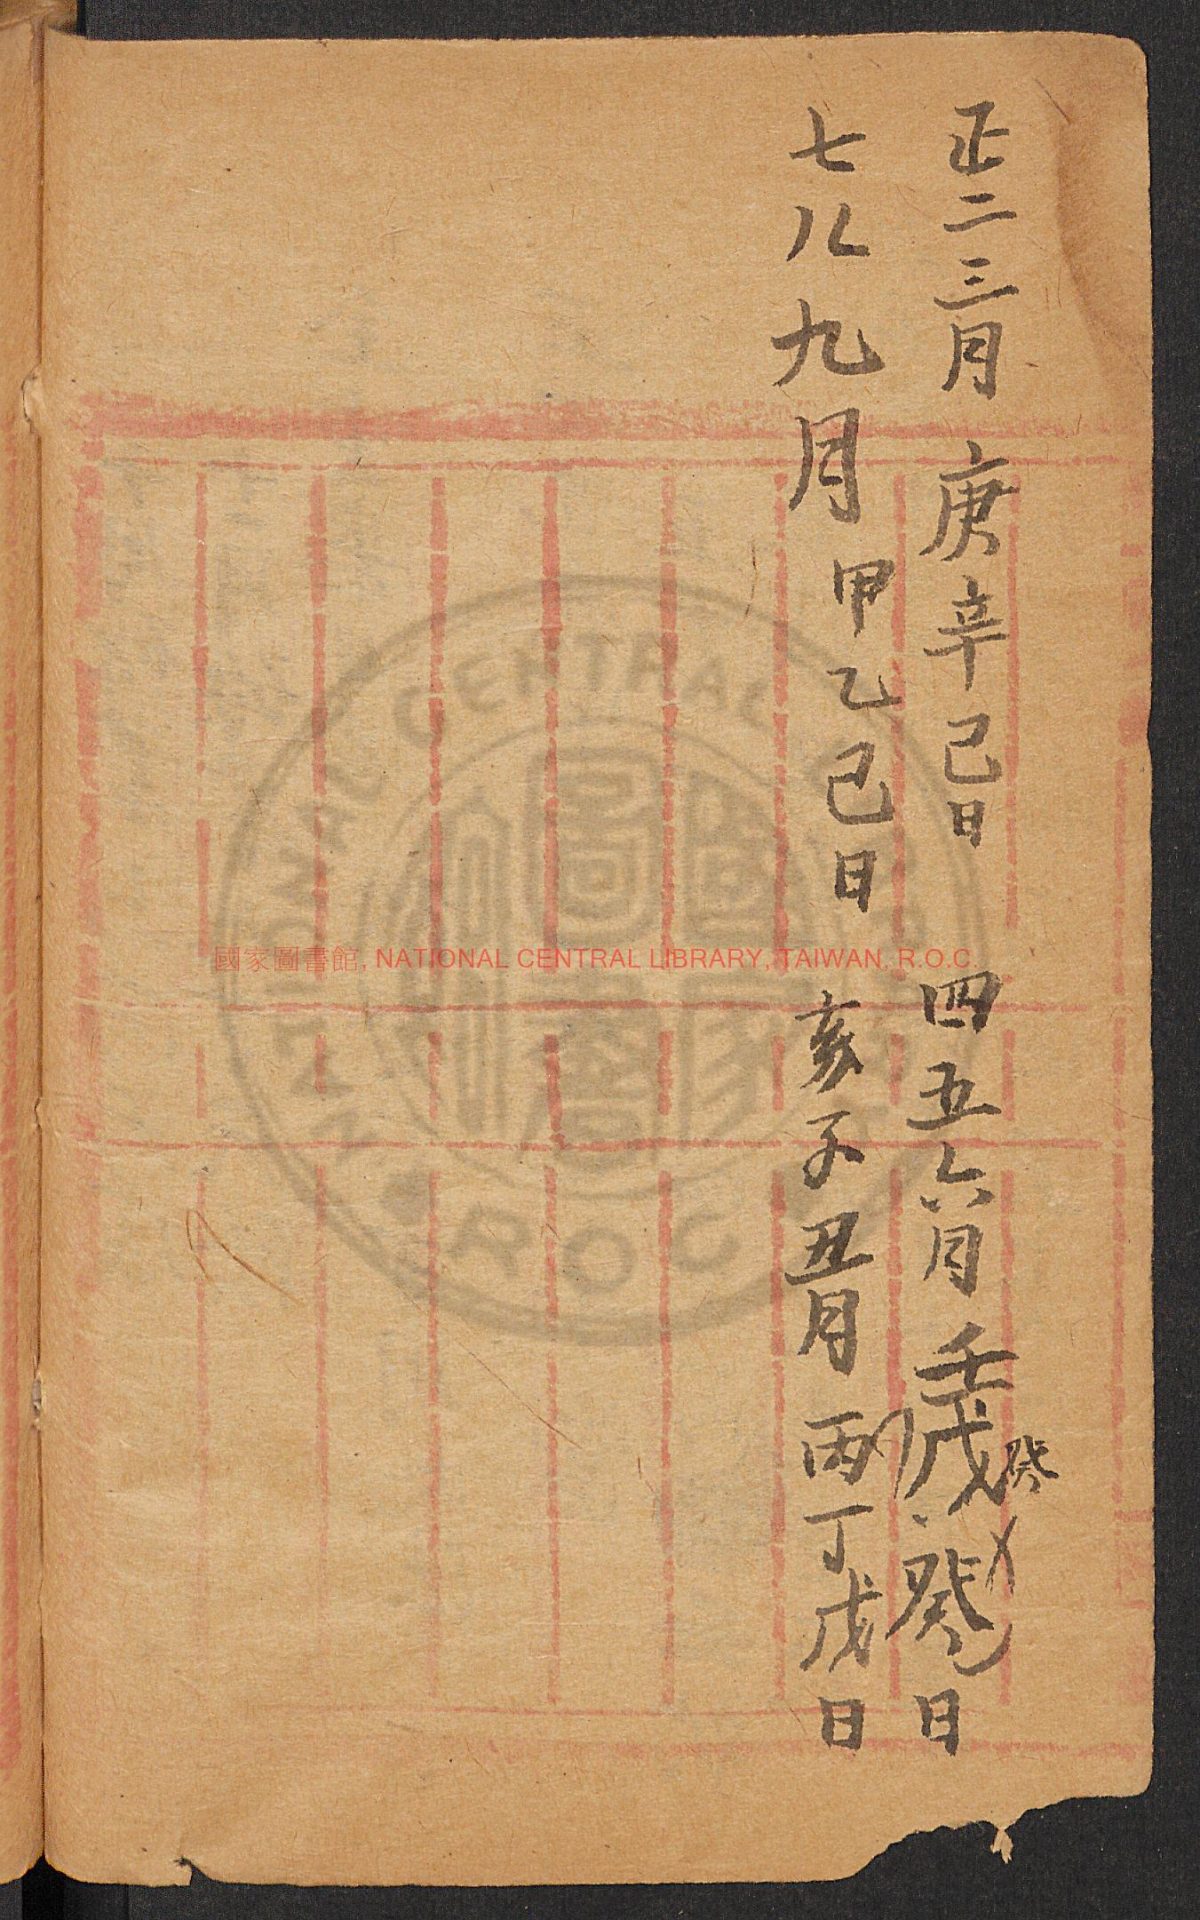 正二三月 庚辛己日 四五六月 壬戊癸日
癸
七八九月 甲乙己日 亥子丑月 丙丁戊日
國家圖書館, NATIONAL CENTRAL LIBRARY, TAIWAN, R.O.C.
NATIONAL CENTRAL LIBRARY R.O.C